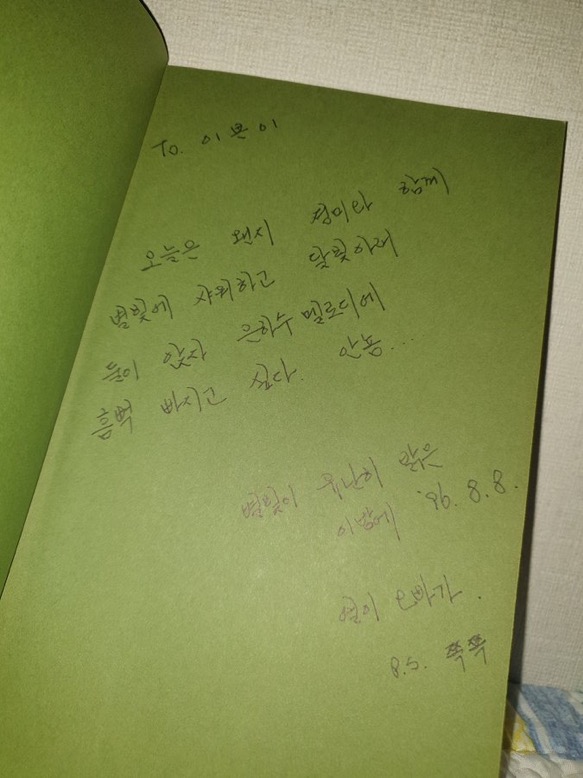 To. 이쁜이
오늘은 왠지 정미와 함께
별빛에 샤워하고 달빛아래
둘이 앉자 은하수 멜로디에
흠뻑 빠지고 싶다. 안뇽...
별빛이 유난히 맑은
이밤에 '96. 8. 8.
열이 오빠가.
P.S. 쪽쪽